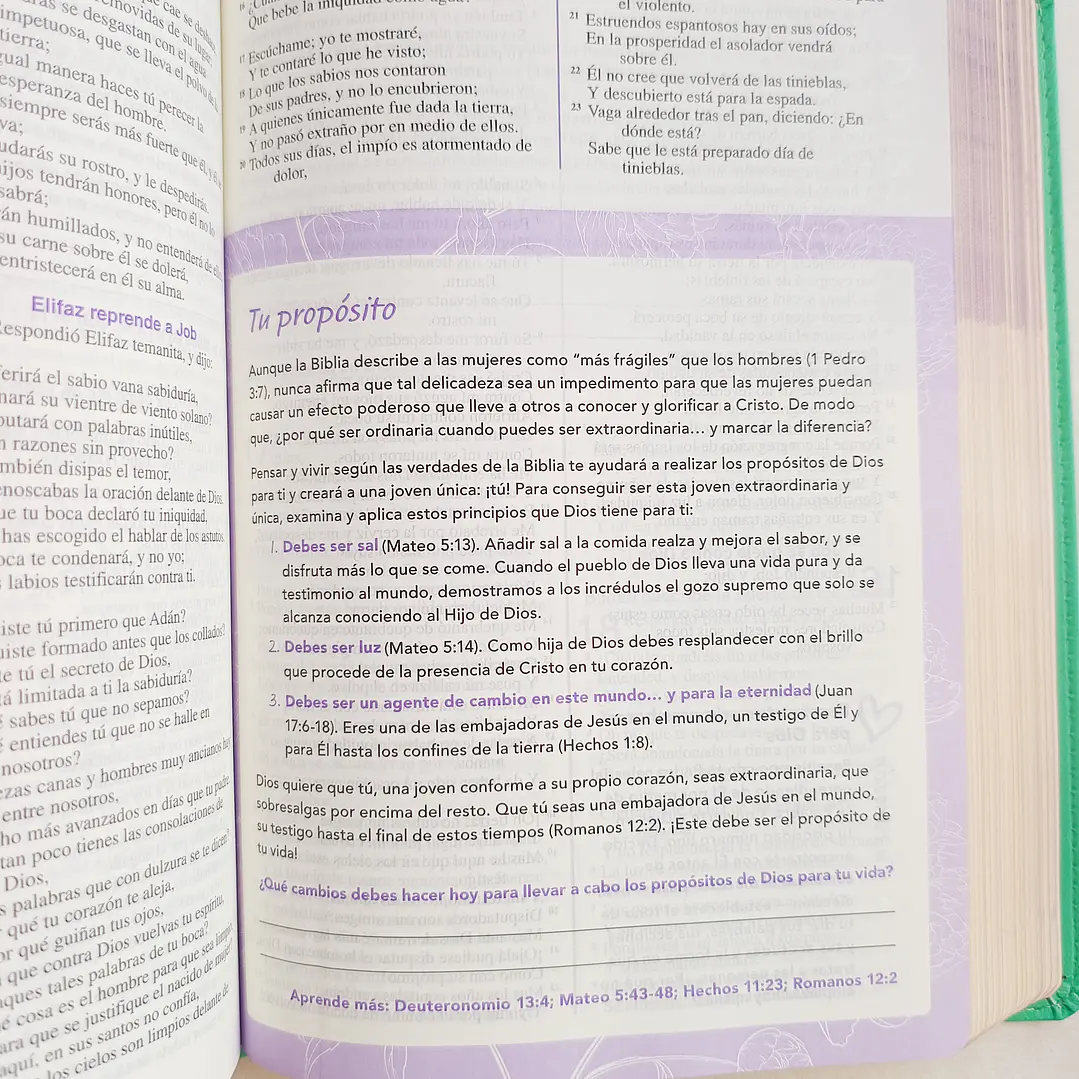 que cae se deshace
removidas de su lugar,
se desgastan con el agua
impetuosa, que se lleva el polvo de la
tierra;
gual manera haces tú perecer la
esperanza del hombre.
siempre serás más fuerte que él, y él se
va;
udarás su rostro, y le despedirás.
ijos tendrán honores, pero él no lo
sabrá;
án humillados, y no entenderá de
su carne sobre él se dolerá,
entristecerá en él su alma.
Elifaz reprende a Job
Respondió Elifaz temanita, y dijo:
erirá el sabio vana sabiduría,
nará su vientre de viento solano?
putará con palabras inútiles,
n razones sin provecho?
mbién disipas el temor,
enoscabas la oración delante de Dios.
ue tu boca declaró tu iniquidad,
has escogido el hablar de los astutos.
oca te condenará, y no yo;
labios testificarán contra ti.
iste tú primero que Adán?
uiste formado antes que los collados?
te tú el secreto de Dios,
tá limitada a ti la sabiduría?
é sabes tú que no sepamos?
é entiendes tú que no se halle en
nosotros?
ezas canas y hombres muy ancianos hay
entre nosotros,
ho más avanzados en días que tu padre
tan poco tienes las consolaciones de
Dios,
s palabras que con dulzura se te dicen?
qué tu corazón te aleja,
or qué guiñan tus ojos,
que contra Dios vuelvas tu espíritu,
aques tales palabras de tu boca?
é cosa es el hombre para que sea limpio,
ara que se justifique el nacido de mujer?
aquí, en sus santos no confía,
los cielos son limpios delante de
Que bebe la iniquidad como agua?
17 Escúchame; yo te mostraré,
Y te contaré lo que he visto;
18 Lo que los sabios nos contaron
De sus padres, y no lo encubrieron;
19 A quienes únicamente fue dada la tierra,
Y no pasó extraño por en medio de ellos.
20 Todos sus días, el impío es atormentado de
dolor,
el violento.
21 Estruendos espantosos hay en sus oídos;
En la prosperidad el asolador vendrá
sobre él.
22 Él no cree que volverá de las tinieblas,
Y descubierto está para la espada.
23 Vaga alrededor tras el pan, diciendo: ¿En
dónde está?
Sabe que le está preparado día de
tinieblas.
Tu propósito
Aunque la Biblia describe a las mujeres como “más frágiles” que los hombres (1 Pedro
3:7), nunca afirma que tal delicadeza sea un impedimento para que las mujeres puedan
causar un efecto poderoso que lleve a otros a conocer y glorificar a Cristo. De modo
que, ¿por qué ser ordinaria cuando puedes ser extraordinaria… y marcar la diferencia?
Pensar y vivir según las verdades de la Biblia te ayudará a realizar los propósitos de Dios
para ti y creará a una joven única: ¡tú! Para conseguir ser esta joven extraordinaria y
única, examina y aplica estos principios que Dios tiene para ti:
1. Debes ser sal (Mateo 5:13). Añadir sal a la comida realza y mejora el sabor, y se
disfruta más lo que se come. Cuando el pueblo de Dios lleva una vida pura y da
testimonio al mundo, demostramos a los incrédulos el gozo supremo que solo se
alcanza conociendo al Hijo de Dios.
2. Debes ser luz (Mateo 5:14). Como hija de Dios debes resplandecer con el brillo
que procede de la presencia de Cristo en tu corazón.
3. Debes ser un agente de cambio en este mundo… y para la eternidad (Juan
17:6-18). Eres una de las embajadoras de Jesús en el mundo, un testigo de Él y
para Él hasta los confines de la tierra (Hechos 1:8).
Dios quiere que tú, una joven conforme a su propio corazón, seas extraordinaria, que
sobresalgas por encima del resto. Que tú seas una embajadora de Jesús en el mundo,
su testigo hasta el final de estos tiempos (Romanos 12:2). ¡Este debe ser el propósito de
tu vida!
¿Qué cambios debes hacer hoy para llevar a cabo los propósitos de Dios para tu vida?
Aprende más: Deuteronomio 13:4; Mateo 5:43-48; Hechos 11:23; Romanos 12:2